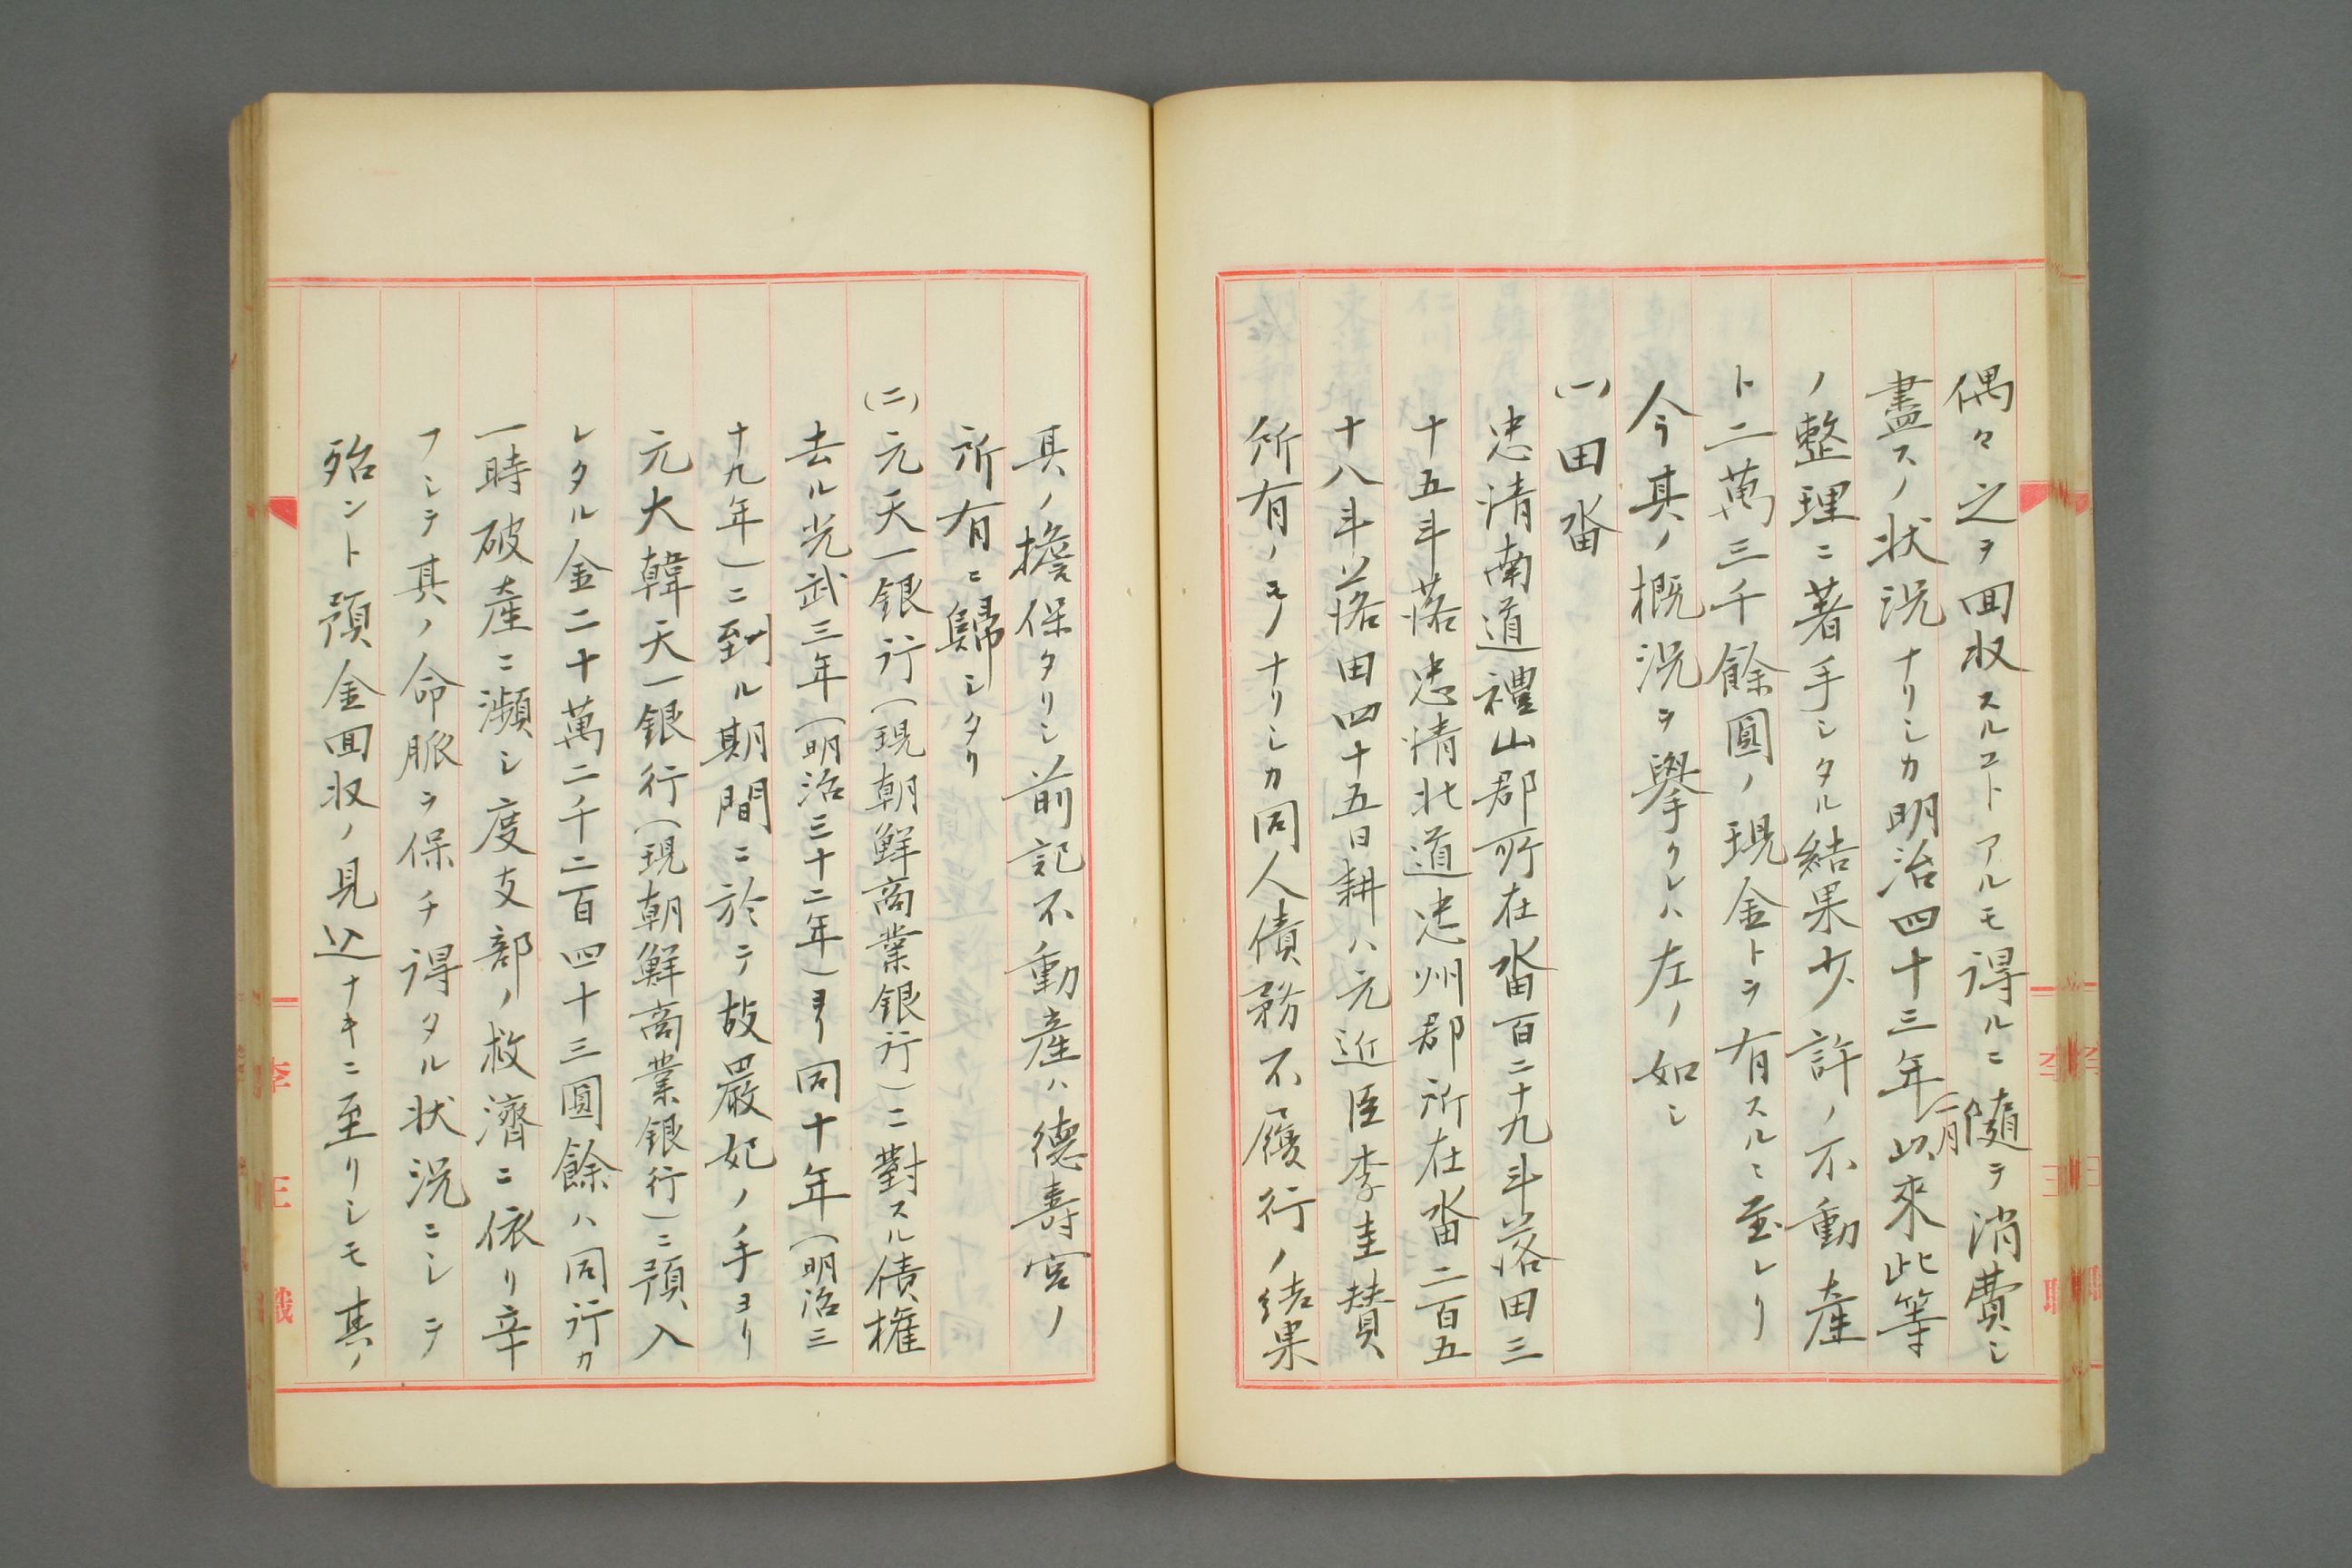 偶々之ヲ回収スルコトアルモ得ルニ随テ消費シ
盡スノ状況ナリシカ明治四十三年一月以來此等
ノ整理ニ著手シタル結果少許ノ不動産
ト二萬三千餘圓ノ現金トヲ有スルニ至レリ
今其ノ概況ヲ擧クレハ左ノ如シ
(一)田畓
忠清南道禮山郡所在畓百二十九斗落田三
十五斗落忠清北道忠州郡所在畓二百五
十八斗落田四十五日耕ハ元近臣李圭賛
所有ノモノナリシカ同人債務不履行ノ結果
其ノ擔保タリシ前記不動産ハ德壽宮ノ
所有ニ歸シタリ
(二)元天一銀行(現朝鮮商業銀行)ニ對スル債權
去ル光武三年(明治三十二年)ヨリ同十年(明治三
十九年)ニ到ル期間ニ於テ故嚴妃ノ手ヨリ
元大韓天一銀行(現朝鮮商業銀行)ニ預入
レタル金二十萬二千二百四十三圓餘ハ同行カ
一時破産ニ瀕シ度支部ノ救濟ニ依リ辛
フシテ其ノ命脈ヲ保チ得タル状況ニシテ
殆ント預金回収ノ見込ナキニ至リシモ其ノ
李王職